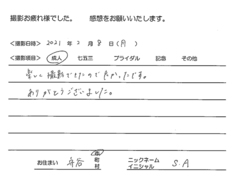 撮影お疲れ様でした。 感想をお願いいたします。
<撮影日時> 2021 年 2 月 8 日 (月)
<撮影項目> 成人 七五三 ブライダル 記念 その他
撮影できたのでよかったです。
ありがとうございました。
お住まい 町 村 ニックネーム イニシャル S A